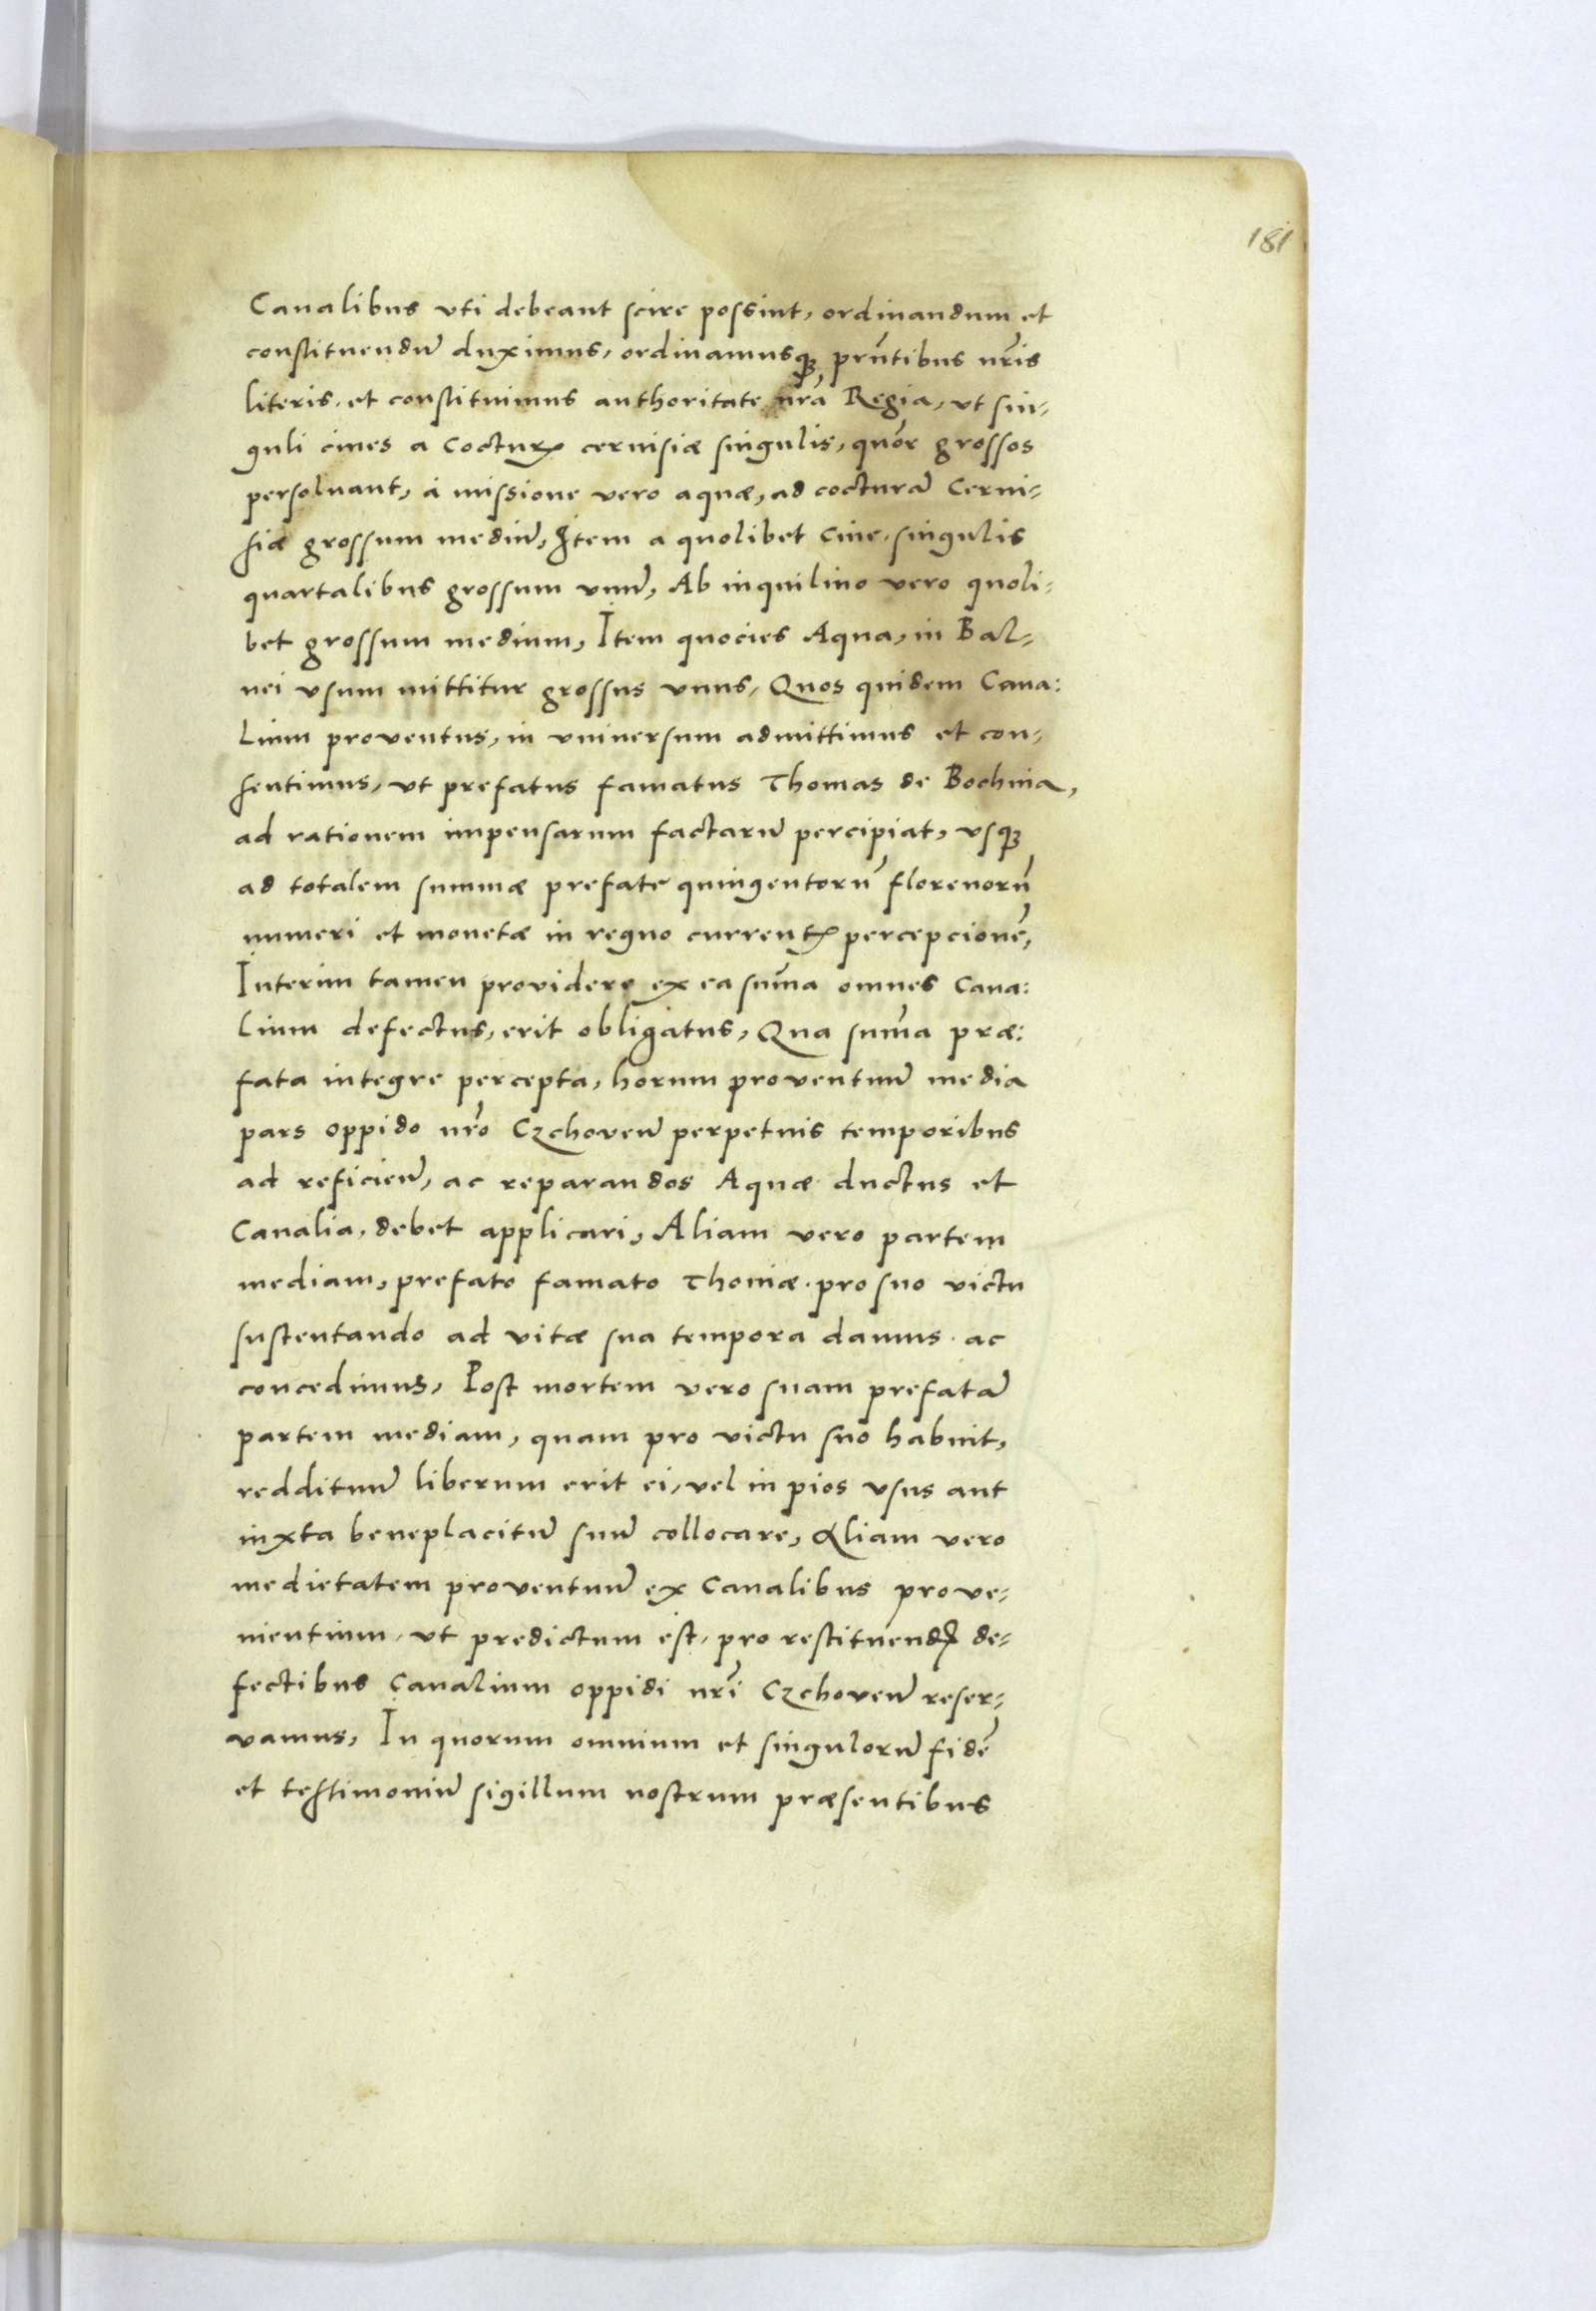 181
Canalibus vti debeant scire possint, ordinandum et
constituendū duximus, ordinamusqȝ prñtibus nr̃is
literis, et constituimus authoritate nr̃a Regia, ut sin-
guli ciues a Cocturꝭ ceruisiæ singulis, quõr grossos
persoluant, à missione vero aquæ, ad cocturā Cerui-
siæ grossum mediū, Item a quolibet Ciue, singulis
quartalibus grossum vnū, Ab inquilino vero quoli-
bet grossum medium, Item quocies Aqua, in Bal-
nei vsum mittitur grossus vnus, Quos quidem Cana:
Lium proventus, in vniuersum admittimus et con-
sentimus, ut prefatus famatus Thomas de Bochnia,
ad rationem impensarum factarū percipiat, vsqȝ
ad totalem summæ prefate quingentorū florenorū
numeri et monetæ in regno currentꝭ percepcionē,
Interim tamen providere ex ea sum̃a omnes Cana:
Lium defectus, erit obligatus, Qua sum̃a præ:
fata integre percepta, horum proventuū media
pars oppido nr̃o Czchovieñ perpetuis temporibus
ad reficieñ, ac reparandos Aquæ ductus et
Canalia, debet applicari, Aliam vero partem
mediam, prefato famato Thomæ pro suo victu
sustentando ad vitæ sua tempora damus ac
concedimus, Post mortem vero suam prefatā
partem mediam, quam pro victu suo habuit,
reddituū liberum erit ei, vel in pios vsus aut
iuxta beneplacitū suū collocare, Aliam vero
medietatem proventuū ex Canalibus prove-
nientium, ut predictum est, pro restituendꝭ de-
fectibus Canalium oppidi nr̃i Czchoveñ reser-
vamus, In quorum omnium et singulorū fidē
et testimoniū sigillum nostrum præsentibus